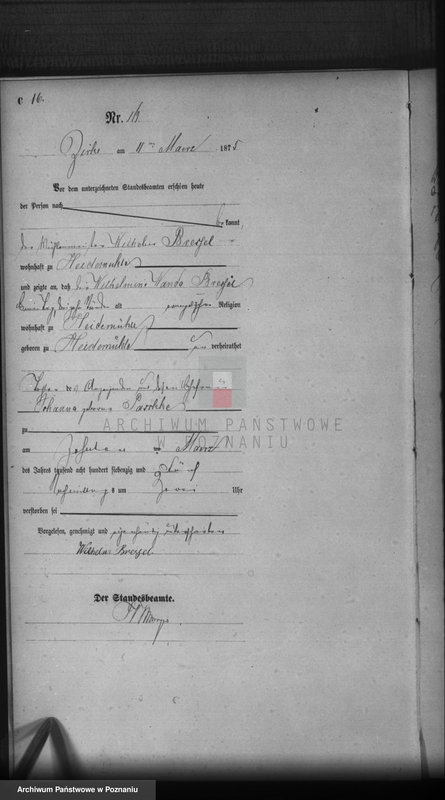 C 16.
Nr. 16
Zirke am 11ten Maerz 1875
Vor dem unterzeichneten Standesbeamten erschien heute
der Person nach
bekannt,
der Mühlenmeister Wilhelm Bressel
wohnhaft zu Heidemühle
und zeigte an, daß die Wilhelmine Wanda Bressel
alt evangelischer Religion
wohnhaft zu Heidemühle
geboren zu Heidemühle unverheirathet
Tochter des Anzeigenden und dessen Ehefrau
Johanna geborene
zu
am zehnten Maerz
des Jahres tausend acht hundert siebenzig und fünf
Nachmittags um zwei Uhr
verstorben sei
Vorgelesen, genehmigt und eigenhändig unterschrieben
Wilhelm Bressel
Der Standesbeamte.
ARCHIWUM PAŃSTWOWE
W POZNANIU
Archiwum Państwowe w Poznaniu